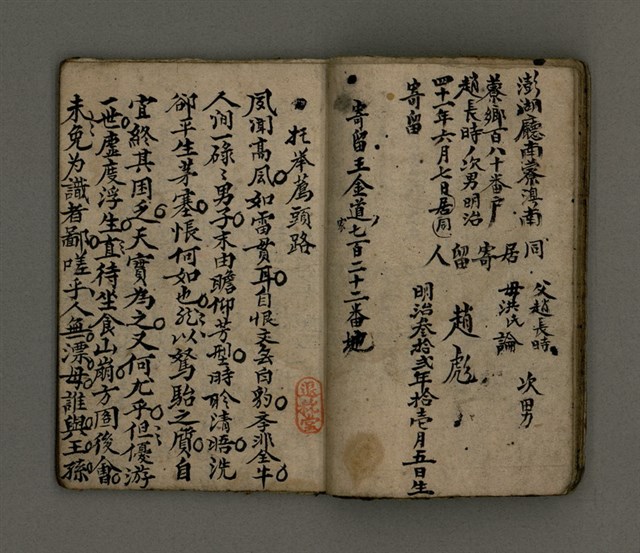 澎湖廳南藔澳南
藔鄉百八十番戶
趙長時ノ次男明治
四十一年六月七日居同
寄留
同居寄留人
父趙長時
母洪氏論
次男
趙彪
明治叁拾弍年拾壱月五日生
寄留王金道七百二十二番地
托举薦頭路
夙聞高风如雷貫耳自恨委岳白豹季非全牛
人间一碌々男子未由瞻仰芳型時聆清晤洗
卻平生茅塞悵何如也以駑駘之質自
宜終其困乏天實為之又何尤乎但優游
一世虛度浮生直待坐食山崩方图後會
未免为識者鄙嗟乎人無漂母誰與王孫